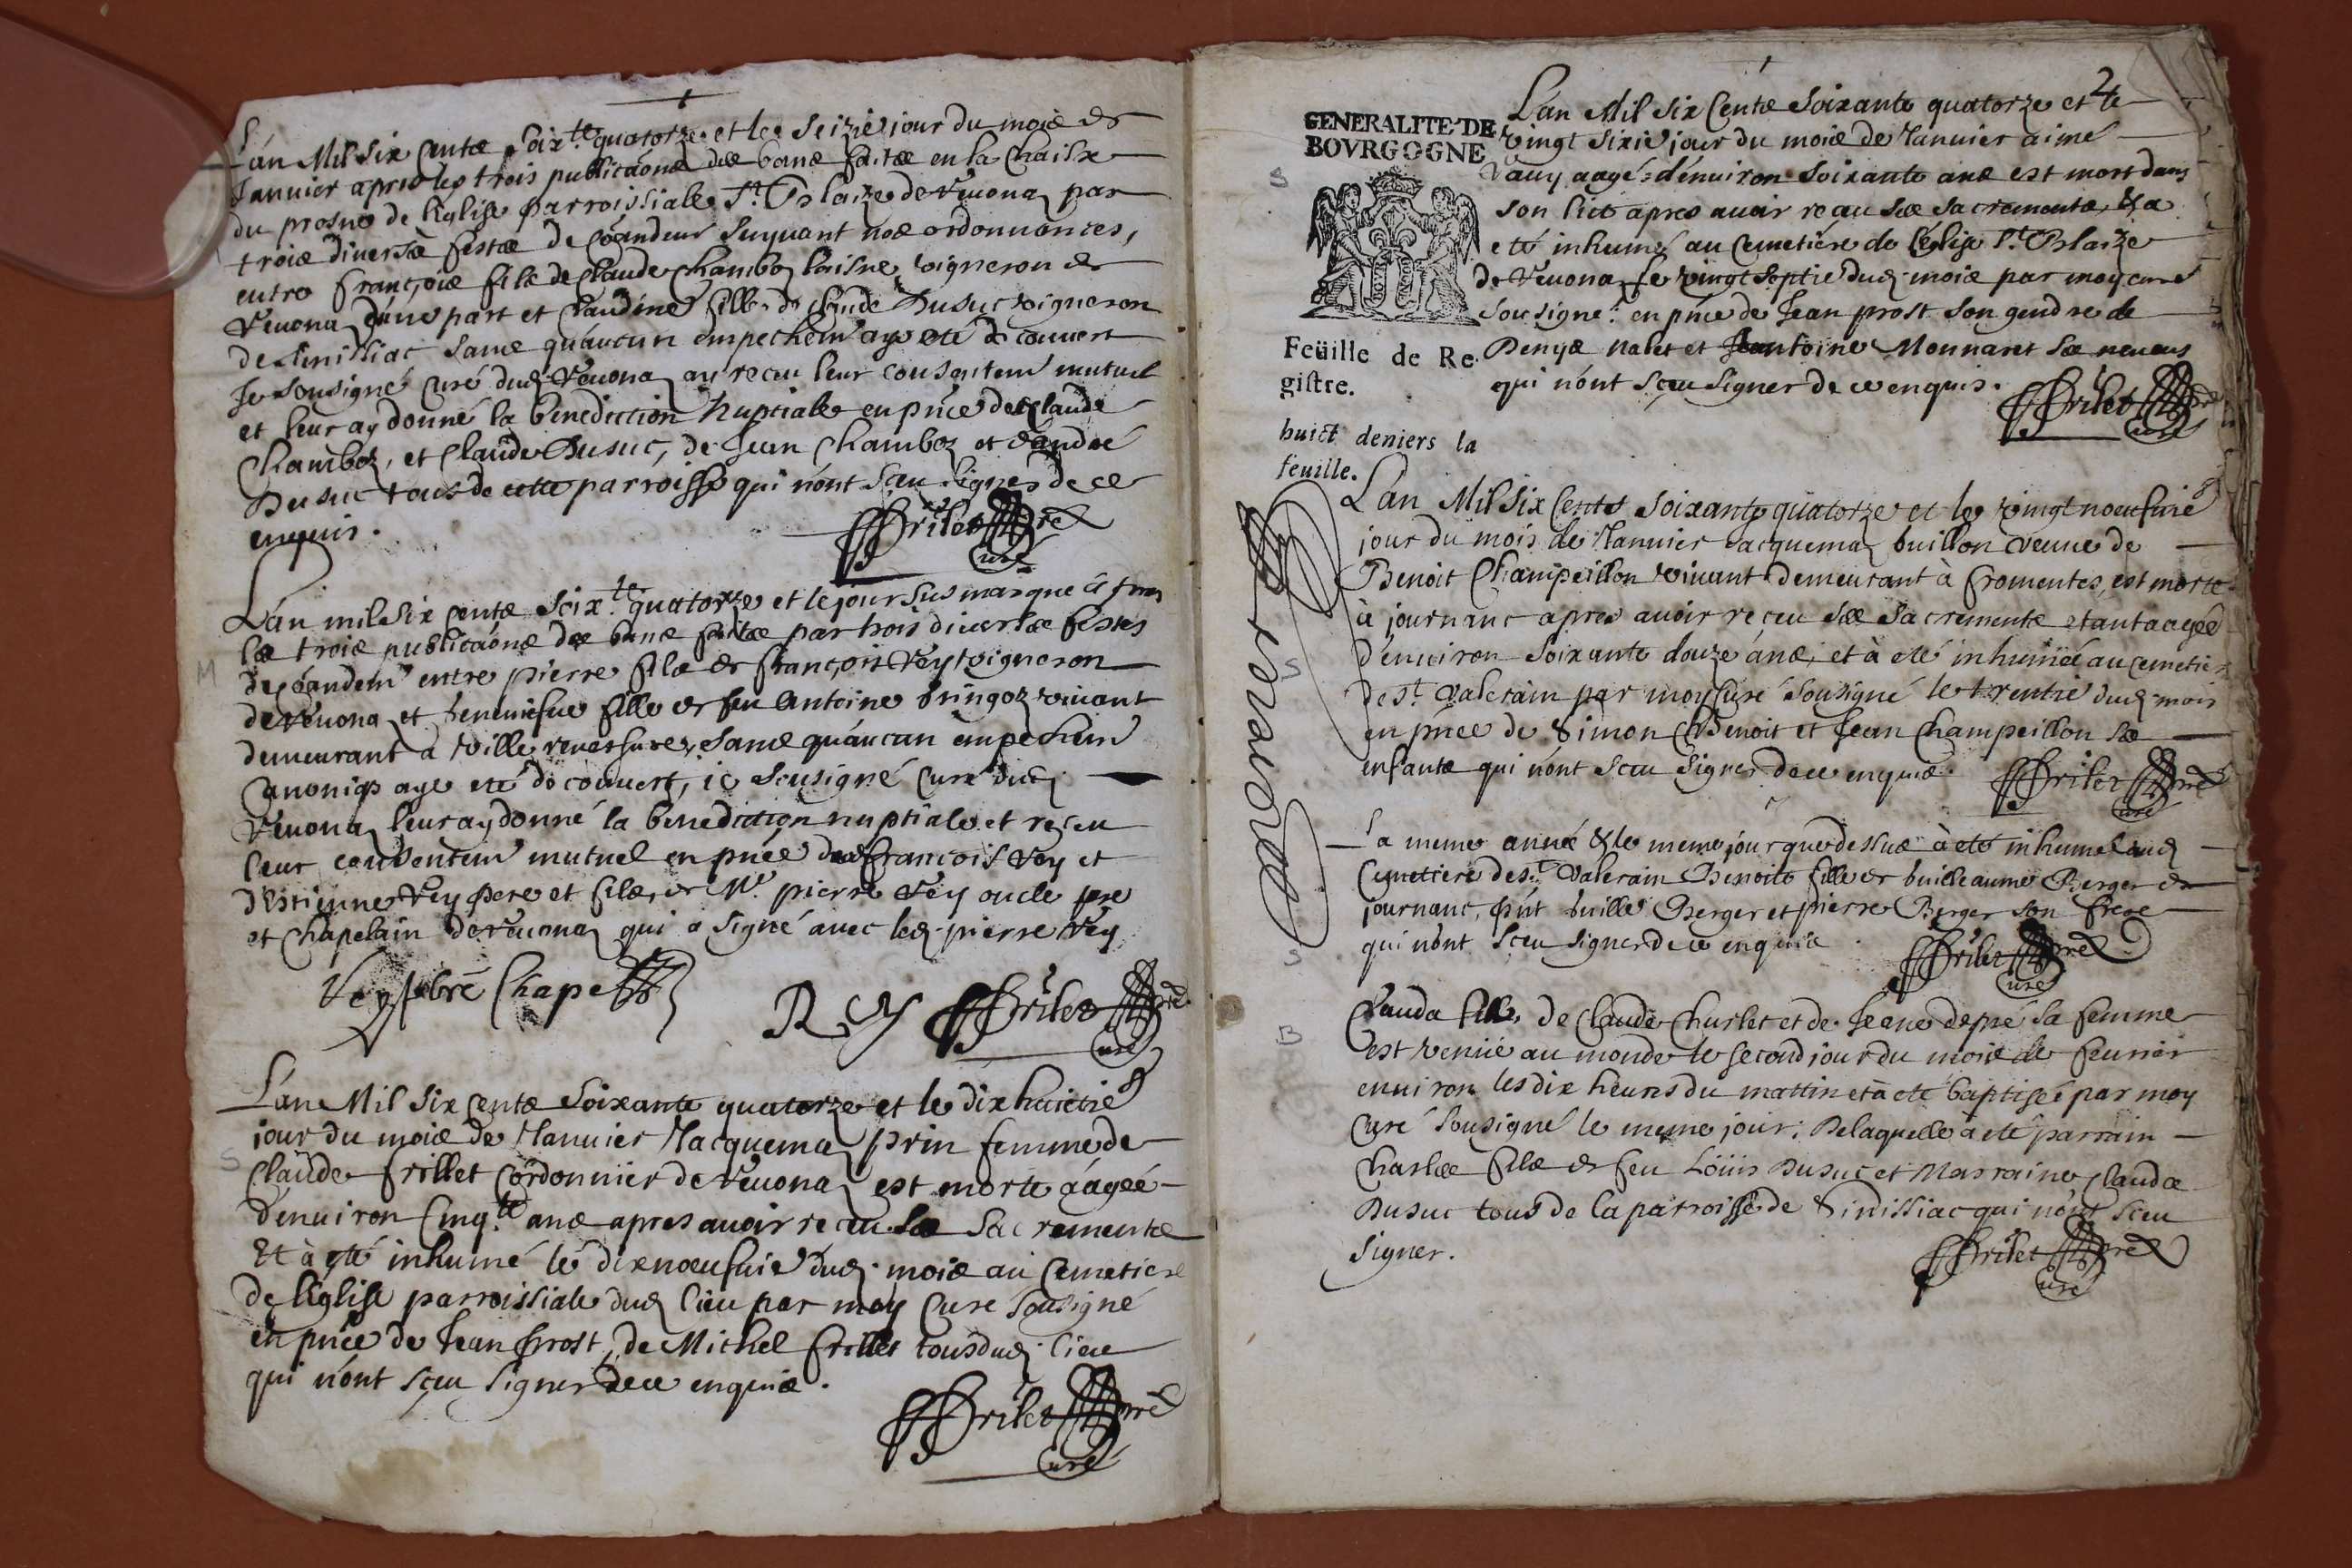 L'an Mil six cents soix.te quatorze et les seizie jour du mois de
Januier apres les trois publicaõns des bans faites en la Chaise
du prosne de l'eglise parroissialle St. Blaize de Veuona par
trois diuerses festes de coandeur suyuant nos ordonnances,
entre françois fils de Claude Chamboz laisne vigneron de
Veuona d'une part et Claudine fille de Claude Dusuc vigneron
de Sinissiac sans qu'aucun empechem aye eté découuert
Je sousigné curé dud. Veuona ay receu leur consentem mutuel
et leur ay donné la benediction Nuptiale en pñce de Claude
Chamboz, et Claude Dusuc, de Jean Chamboz et d'andré
Dusuc tous de cette parroisse qui n'ont sceu signer de ce
enquis.
F Frilet pre
curé
L'an mil six cents soix.te quatorze et le jour sus marque
les trois publicaõns des bans faites par trois diuerses festes
de coandem entre pierre fils de françois Vey vigneron
de Veuona et fille de feu Antoine bringoz viuant
demeurant a Ville reuersure, sans qu'aucun empechem
Canoniq aye eté decouuert, ie sousigné Curé dud.
Veuona leur ay donné la benediction nuptiale et reçeu
leur consentem mutuel en pñce dud françois Vey et
d'Estienne Vey pere et fils, de Mre pierre Vey oncle pre
et Chapelain de Veuona qui a signé auec led. pierre Vey
Vey pbre Chape
F Frilet pre
curé
L'an Mil six cents soixante quatorze et le dix huictie
jour du mois de Januier Jacquema prin femme de
Claude frillet Cordonnier de Veuona est morte aagée
d'enuiron Cinq.te ans apres auoir receu ses sacrements
Et à eté inhumé le dix noeufuie dud. mois au Cemetiere
de l'eglise parroissiale dud lieu par moy Curé sousigné
en pñce de Jean prost, de Michel frillet tous dud. lieu
qui n'ont sçeu signer de ce enquis.
F Frilet pre
curé
2
GENERALITE DE
BOVRGOGNE
Feüille de Re-
gistre.
huict deniers la
feuille.
L'an Mil six Cents soixante quatorze et le
vingt sixie jour du mois de Januier aimé
Vauy aagé d'enuiron soixante ans est mort dans
son lict apres auoir reçeu ses sacrements, & a
eté inhumé au Cemetiere de l'eglise St. Blaize
de Veuona le vingt septie dud. mois par moy curé
sousigné en pñce de Jean prost son gendre de
Denys Nalet et Antoine Monnaret ses neueus
qui n'ont sçeu signer de ce enquis.
F Frilet pre
curé
L'an Mil six Cents soixante quatorze et le vingt noeufuie
jour du mois de Januier Jacquema buillon veuue de
Benoit Champeillon viuant demeurant à fromentes, est morte
à journanc apres auoir reçeu ses sacrements etant aagée
d'enuiron soixante douze ans, et à eté inhumée au cemetier
de St. Valerain par moy Curé sousigné le trentie dud. mois
en pñce de Simon Benoit et Jean Champeillon ses
enfants qui n'ont sceu signer de ce enquis.
F Frilet pre
curé
La meme année & le meme jour que dessus à eté inhumé aud
Cemetiere de St. Valerain Benoite fille de builleaume Berger de
journanc, pñt buille Berger et pierre Berger son frere
qui n'ont sceu signer de ce enquis
F Frilet pre
curé
Clauda fille de Claude Churlet et de Jeane depré sa femme
est venüe au monde le second jour du mois de feurier
enuiron les dix heures du mattin et à eté baptisée par moy
Curé sousigné le meme jour; De laquelle à eté parrain
Charles fils de feu Loüis Dusuc et Marraine Clauda
Dusuc tous de la parroisse de Sinissiac qui n'ont sceu
signer.
F Frilet pre
curé
S
S
S
B
M
S